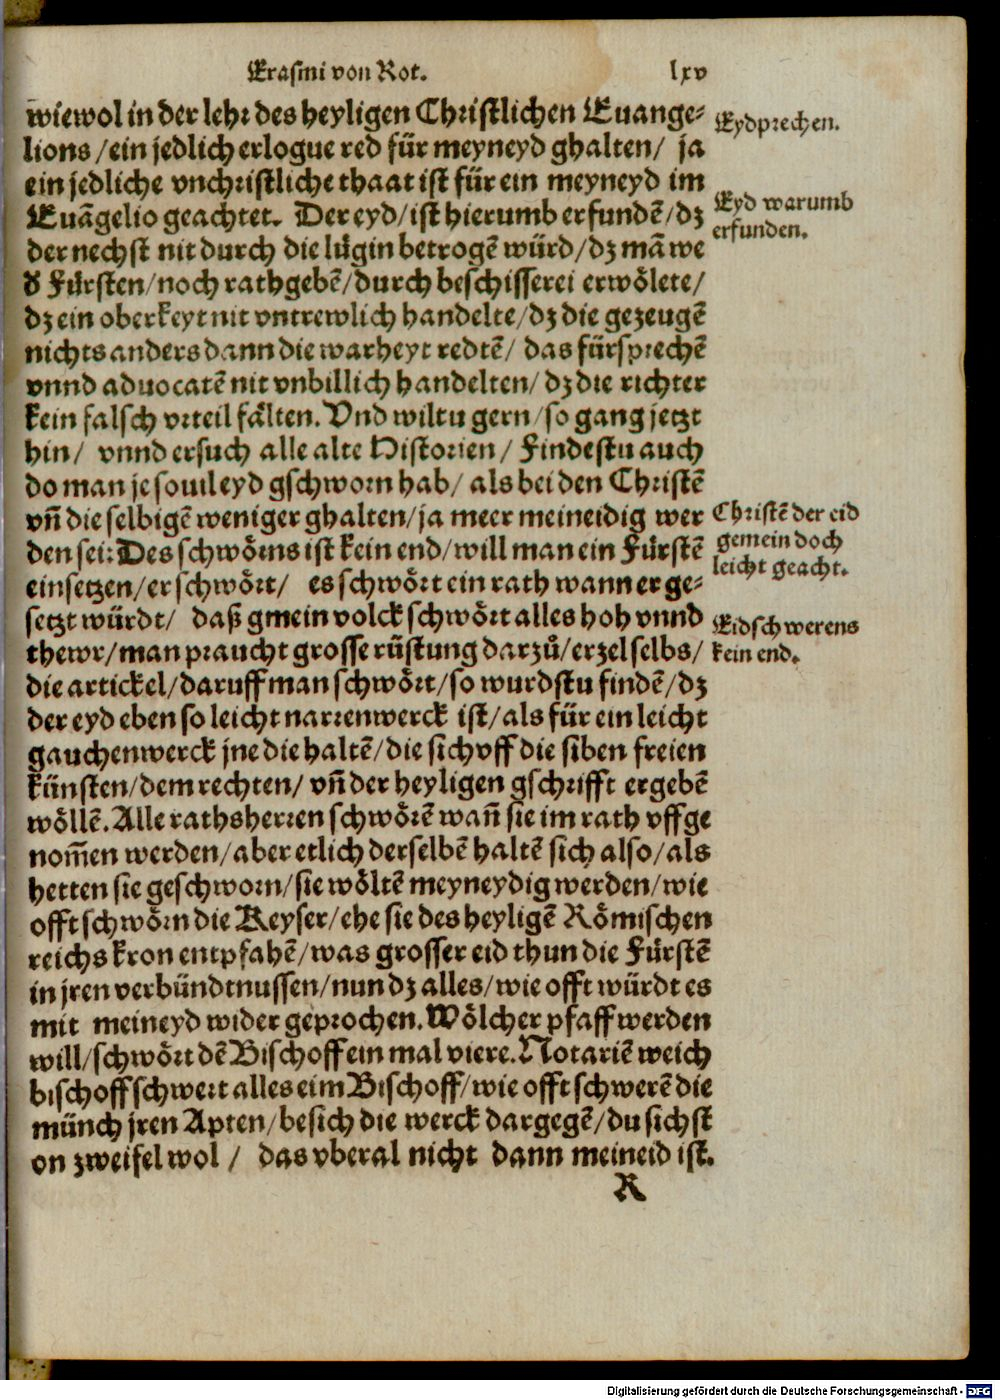 Erasmi von Rot. lxv
wiewol in der lehr des heyligen Christlichen Euange-
lions / ein jedlich erlogue red für meyneyd ghalten / ja
ein jedliche vnchristliche thaat ist für ein meyneyd im
Euãgelio geachtet. Der eyd / ist hierumb erfundẽ / dz
der nechst nit durch die lügin betrogẽ würd / dz mã we
d Fürsten / noch rathgebẽ / durch beschisserei erwölete /
dz ein oberkeyt nit vntrewlich handelte / dz die gezeugẽ
nichts anders dann die warheyt redtẽ / das fürsprechẽ
vnnd aduocatẽ nit vnbillich handelten / dz die richter
kein falsch vrteil fälten. Vnd wiltu gern / so gang jetzt
hin / vnnd ersuch alle alte Historien / Findestu auch
do man je souil eyd gschworn hab / als bei den Christẽ
vñ die selbigẽ weniger ghalten / ja meer meineidig wer
den sei: Des schwörns ist kein end / will man ein Fürstẽ
einsetzen / er schwört / es schwört ein rath wann er ge-
setzt würdt / daß gmein volck schwört alles hoh vnnd
thewr / man praucht grosse rüstung darzů / erzel selbs /
die artickel / daruff man schwört / so wurdstu findẽ / dz
der eyd eben so leicht narrenwerck ist / als für ein leicht
gauchenwerck jne die haltẽ / die sich vff die siben freien
künsten / dem rechten / vñ der heyligen gschrifft ergebẽ
wöllẽ. Alle rathsherren schwörẽ wañ sie im rath vffge
nom̃en werden / aber etlich derselbẽ haltẽ sich also / als
hetten sie geschworn / sie wöltẽ meyneydig werden / wie
offt schwörn die Keyser / ehe sie des heyligẽ Römischen
reichs kron entpfahẽ / was grosser eid thun die Fürstẽ
in jren verbündtnussen / nun dz alles / wie offt würdt es
mit meineyd wider geprochen. Wölcher pfaff werden
will / schwört dẽ Bischoff ein mal viere. Notariẽ weich
bischoff schwert alles eim Bischoff / wie offt schwerẽ die
münch jren Apten / besich die werck dargegẽ / du sichst
on zweifel wol / das vberal nicht dann meineid ist.
R
Eydprechen.
Eyd warumb
erfunden.
Christẽ der eid
gemein doch
leicht geacht.
Eidschwerens
kein end.
Digitalisierung gefördert durch die Deutsche Forschungsgemeinschaft - DFG